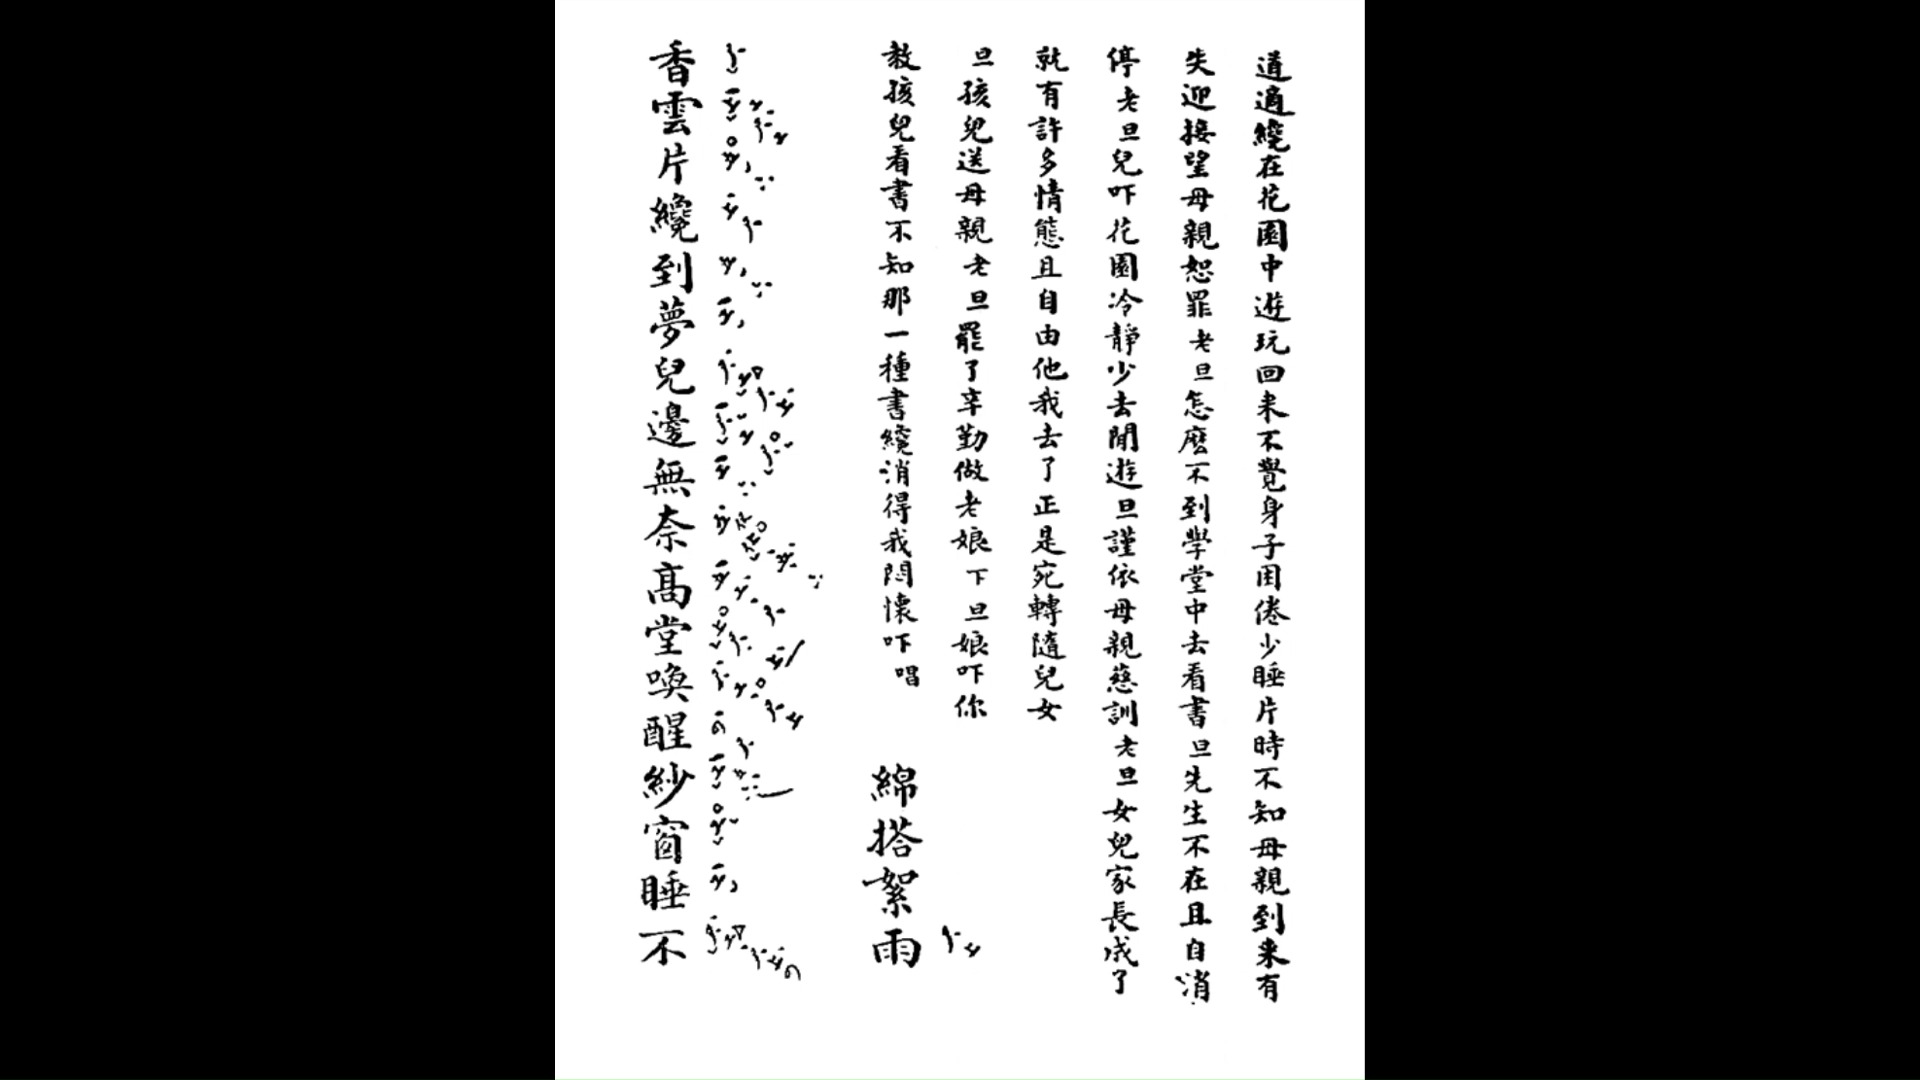 道適纔在花園中遊玩回来不覺身子困倦少睡片時不知母親到来有
失迎接望母親恕罪老旦怎麽不到學堂中去看書旦先生不在且自消
停老旦兒吓花園冷靜少去閒遊旦謹依母親慈訓老旦女兒家長成了
就有許多情態且自由他我去了正是宛轉隨兒女
旦孩兒送母親老旦罷了辛勤做老娘下旦娘吓你
教孩兒看書不知那一種書纔消得我悶懷吓唱
綿搭絮雨
香雲片纔到夢兒邊無奈髙堂喚醒紗窗睡不